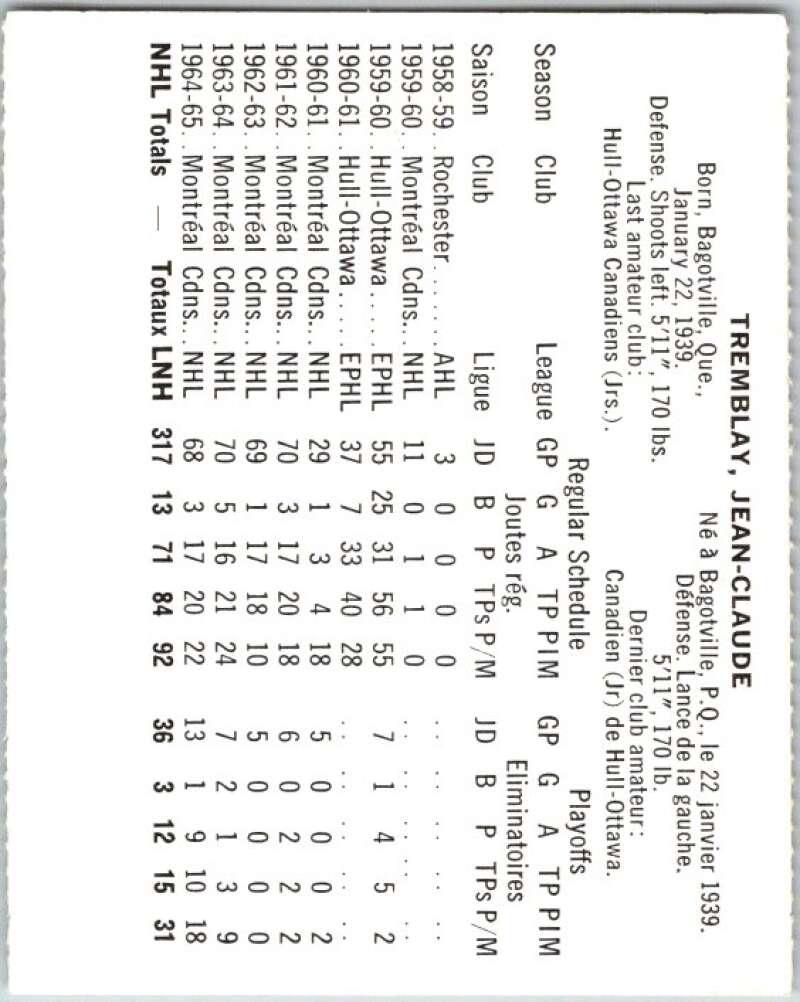 TREMBLAY, JEAN-CLAUDE
Born, Bagotville, Que.,
January 22, 1939.
Defense. Shoots left. 5'11", 170 lbs.
Last amateur club:
Hull-Ottawa Canadiens (Jrs.).
Né à Bagotville, P.Q., le 22 janvier 1939.
Défense. Lance de la gauche.
5'11", 170 lb.
Dernier club amateur:
Canadien (Jr) de Hull-Ottawa.
Regular Schedule Playoffs
Season Club League GP G A TP PIM GP G A TP PIM
Joutes rég. Eliminatoires
Saison Club Ligue JD B P TPs P/M JD B P TPs P/M
1958-59.. Rochester....... AHL 3 0 0 0 0 .. .. .. .. ..
1959-60.. Montréal Cdns... NHL 11 0 1 1 0 .. .. .. .. ..
1959-60.. Hull-Ottawa..... EPHL 55 25 31 56 55 7 1 4 5 2
1960-61.. Hull-Ottawa..... EPHL 37 7 33 40 28 .. .. .. .. ..
1960-61.. Montréal Cdns... NHL 29 1 3 4 18 5 0 0 0 2
1961-62.. Montréal Cdns... NHL 70 3 17 20 18 6 0 2 2 2
1962-63.. Montréal Cdns... NHL 69 1 17 18 10 5 0 0 0 0
1963-64.. Montréal Cdns... NHL 70 5 16 21 24 7 2 1 3 9
1964-65.. Montréal Cdns... NHL 68 3 17 20 22 13 1 9 10 18
NHL Totals — Totaux LNH 317 13 71 84 92 36 3 12 15 31